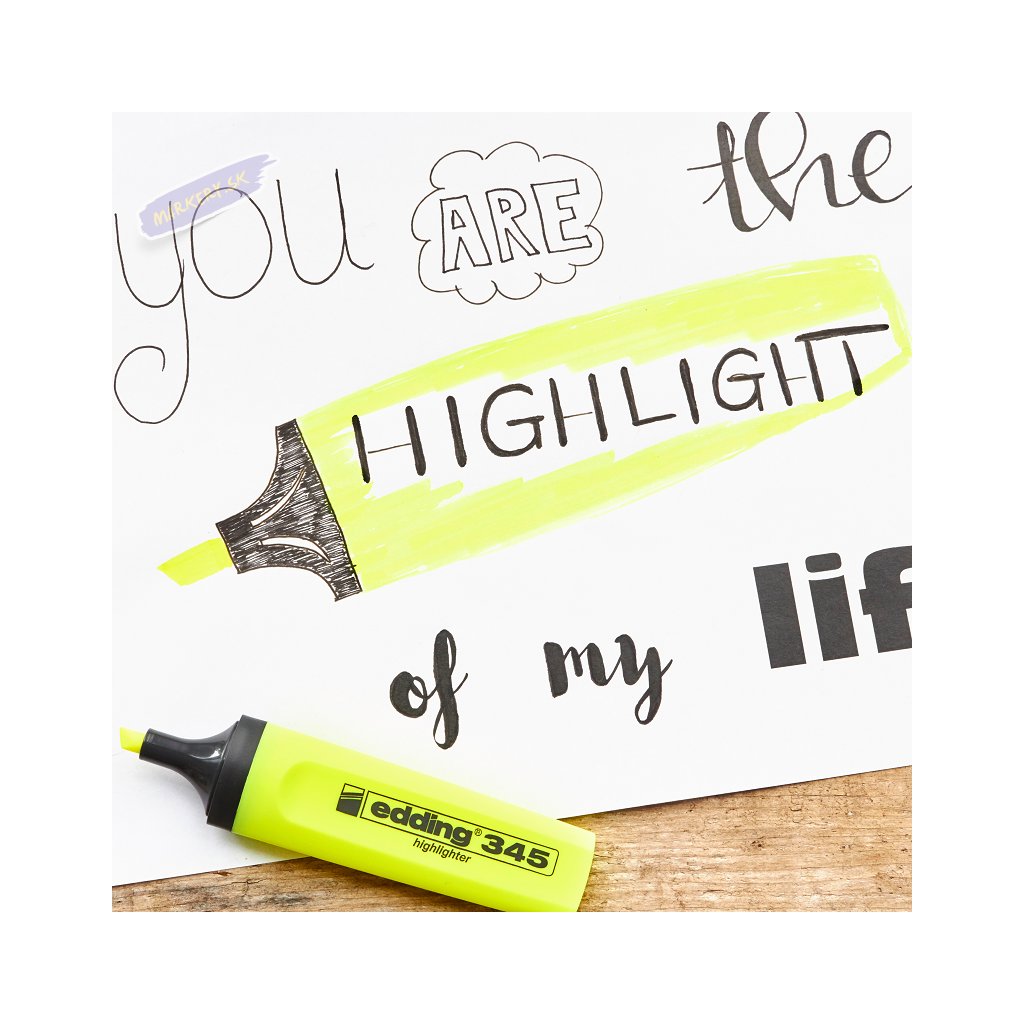 MARKERY.SK
you ARE the
HIGHLIGHT
of my lif
edding® 345
highlighter